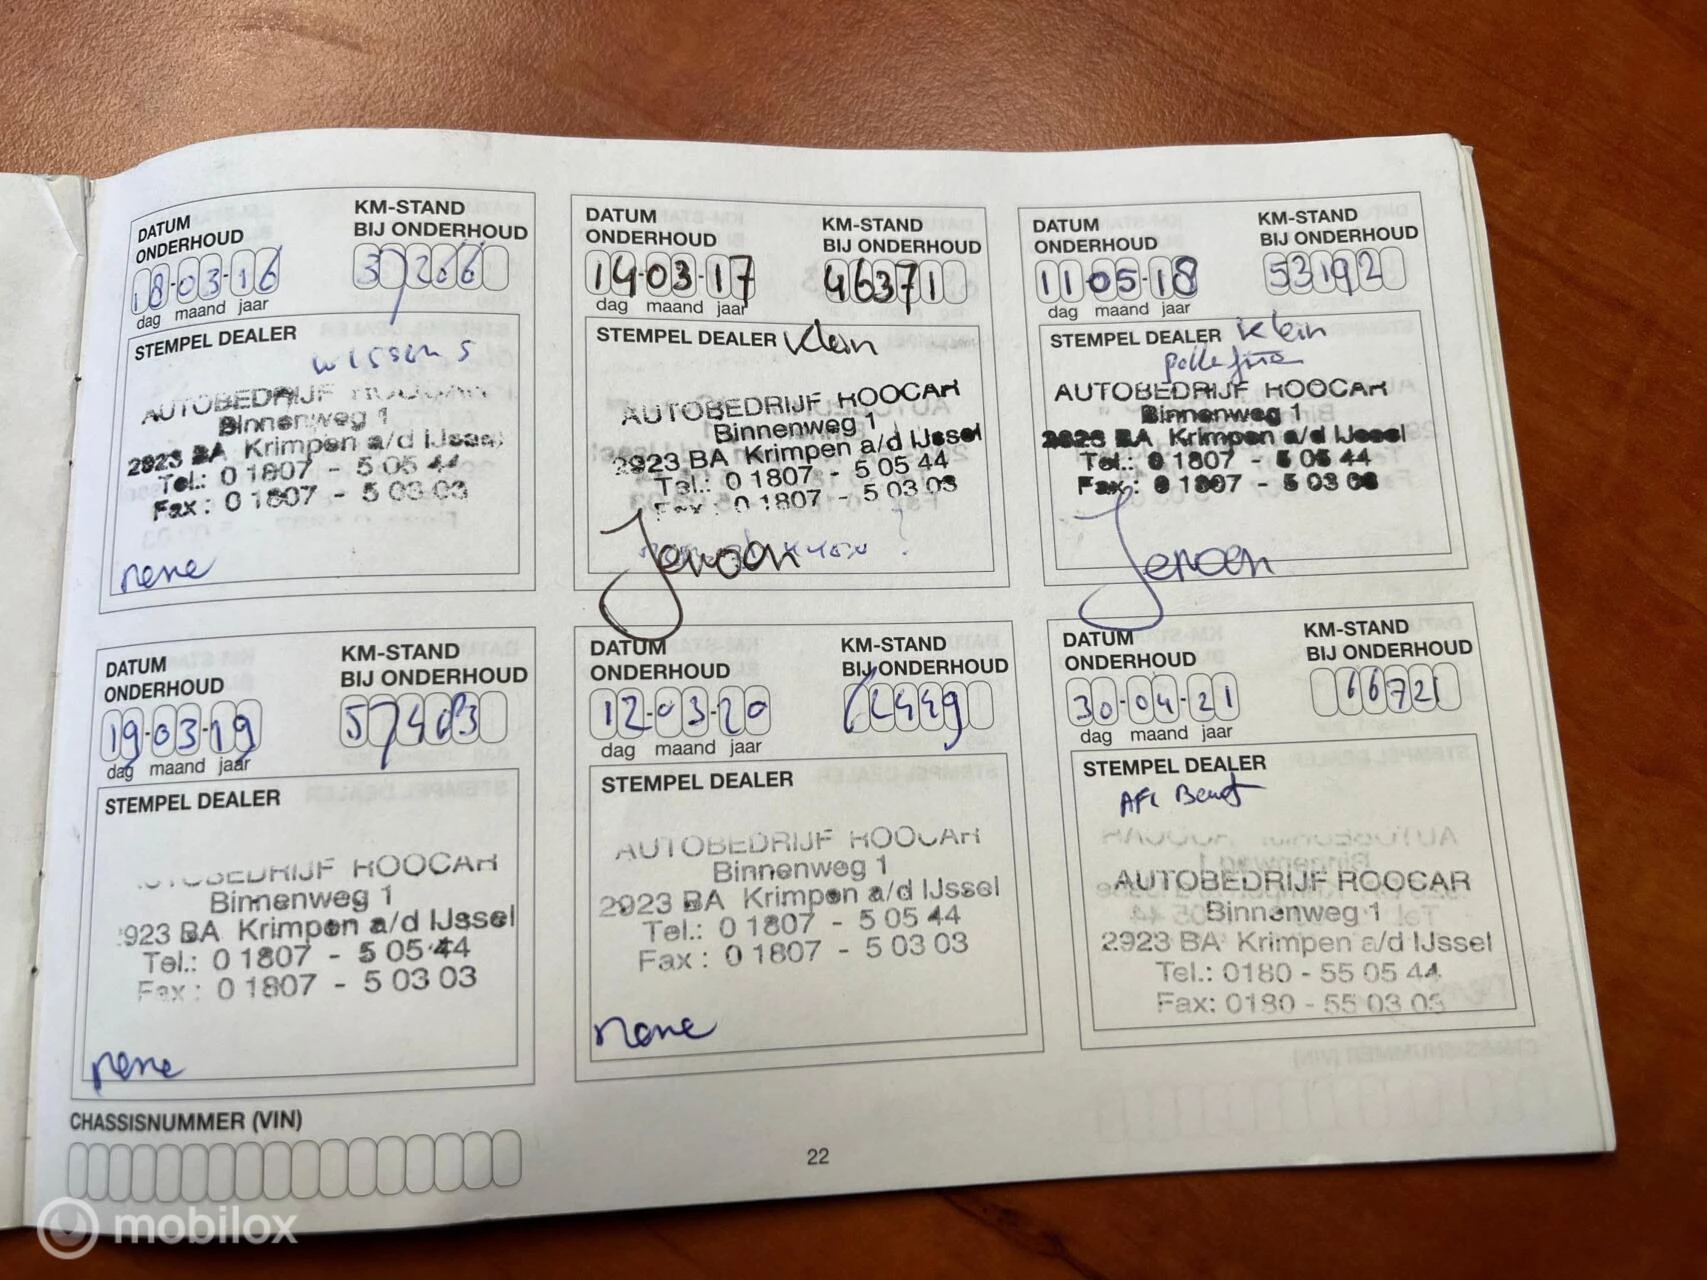 DATUM
ONDERHOUD
KM-STAND
BIJ ONDERHOUD
18-03-16
37266
dag maand jaar
STEMPEL DEALER
AUTOBEDRIJF ROOCAR
Binnenweg 1
2923 BA Krimpen a/d IJssel
Tel.: 0 1807 - 5 05 44
Fax : 0 1807 - 5 03 03
rene
DATUM
ONDERHOUD
KM-STAND
BIJ ONDERHOUD
14-03-17
46371
dag maand jaar
STEMPEL DEALER Klein
AUTOBEDRIJF ROOCAR
Binnenweg 1
2923 BA Krimpen a/d IJssel
Tel.: 0 1807 - 5 05 44
Fax : 0 1807 - 5 03 03
Jeroen
DATUM
ONDERHOUD
KM-STAND
BIJ ONDERHOUD
11-05-18
53192
dag maand jaar
STEMPEL DEALER Klein
AUTOBEDRIJF ROOCAR
Binnenweg 1
2923 BA Krimpen a/d IJssel
Tel.: 0 1807 - 5 05 44
Fax : 0 1807 - 5 03 03
Jeroen
DATUM
ONDERHOUD
KM-STAND
BIJ ONDERHOUD
19-03-19
57403
dag maand jaar
STEMPEL DEALER
AUTOBEDRIJF ROOCAR
Binnenweg 1
2923 BA Krimpen a/d IJssel
Tel.: 0 1807 - 5 05 44
Fax : 0 1807 - 5 03 03
rene
DATUM
ONDERHOUD
KM-STAND
BIJ ONDERHOUD
12-03-20
62449
dag maand jaar
STEMPEL DEALER
AUTOBEDRIJF ROOCAR
Binnenweg 1
2923 BA Krimpen a/d IJssel
Tel.: 0 1807 - 5 05 44
Fax : 0 1807 - 5 03 03
rene
DATUM
ONDERHOUD
KM-STAND
BIJ ONDERHOUD
30-04-21
66721
dag maand jaar
STEMPEL DEALER
AUTOBEDRIJF ROOCAR
Binnenweg 1
2923 BA Krimpen a/d IJssel
Tel.: 0180 - 55 05 44
Fax: 0180 - 55 03 03
CHASSISNUMMER (VIN)
22
mobilox